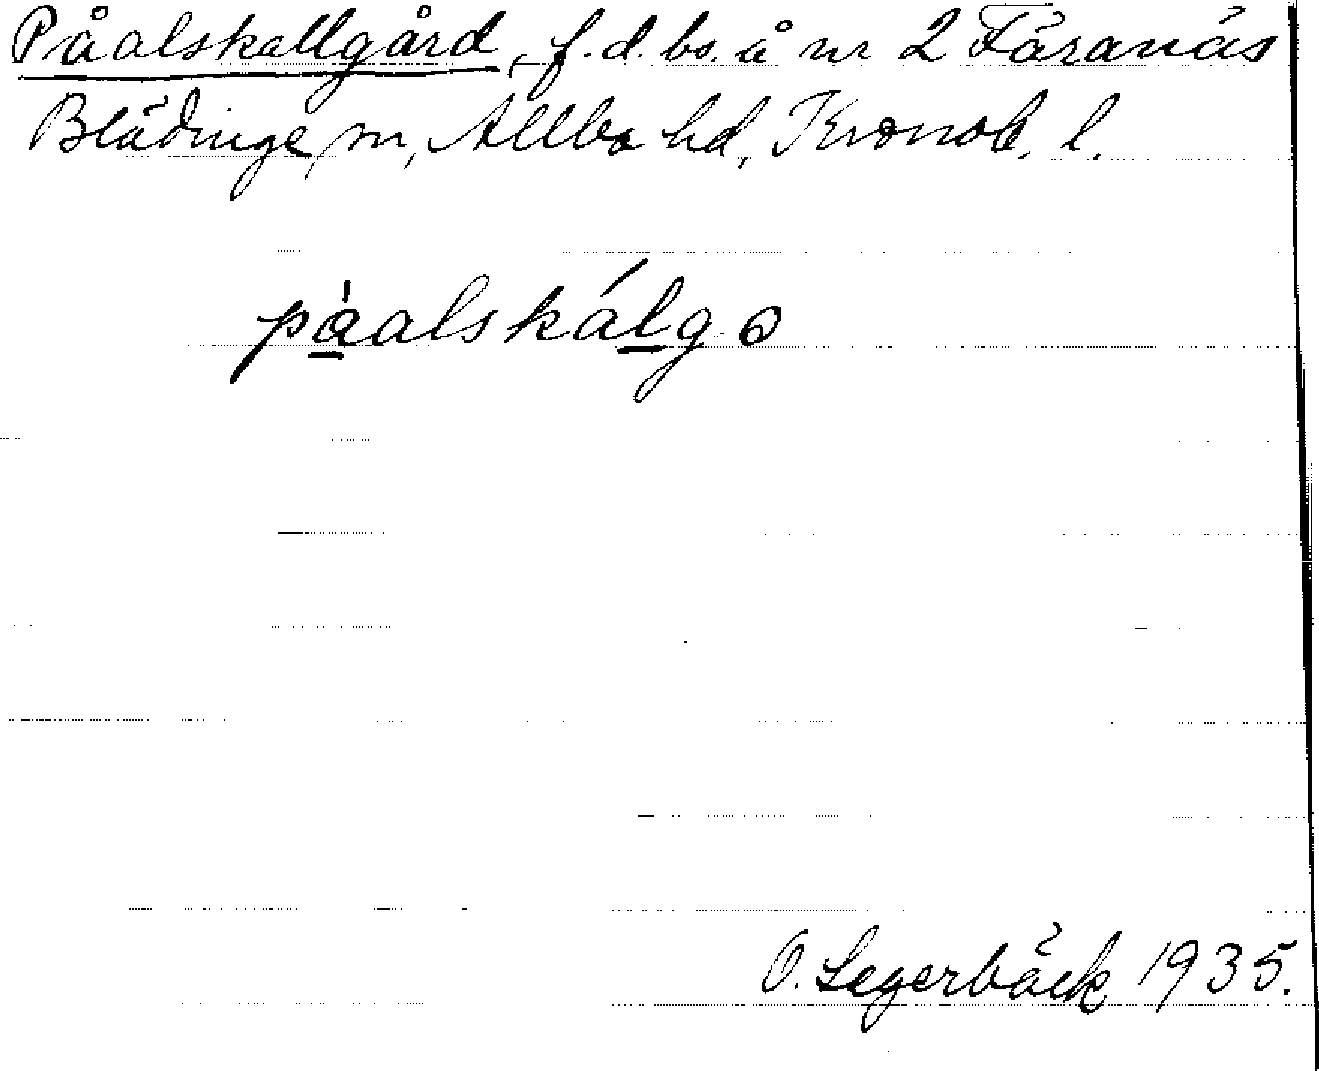 Påalskallgård, f.d. bs. å nr 2 Färanäs
Blädinge sn, Allbo hd, Kronob. l.
pàalskálgo
O. Segerbäck 1935.